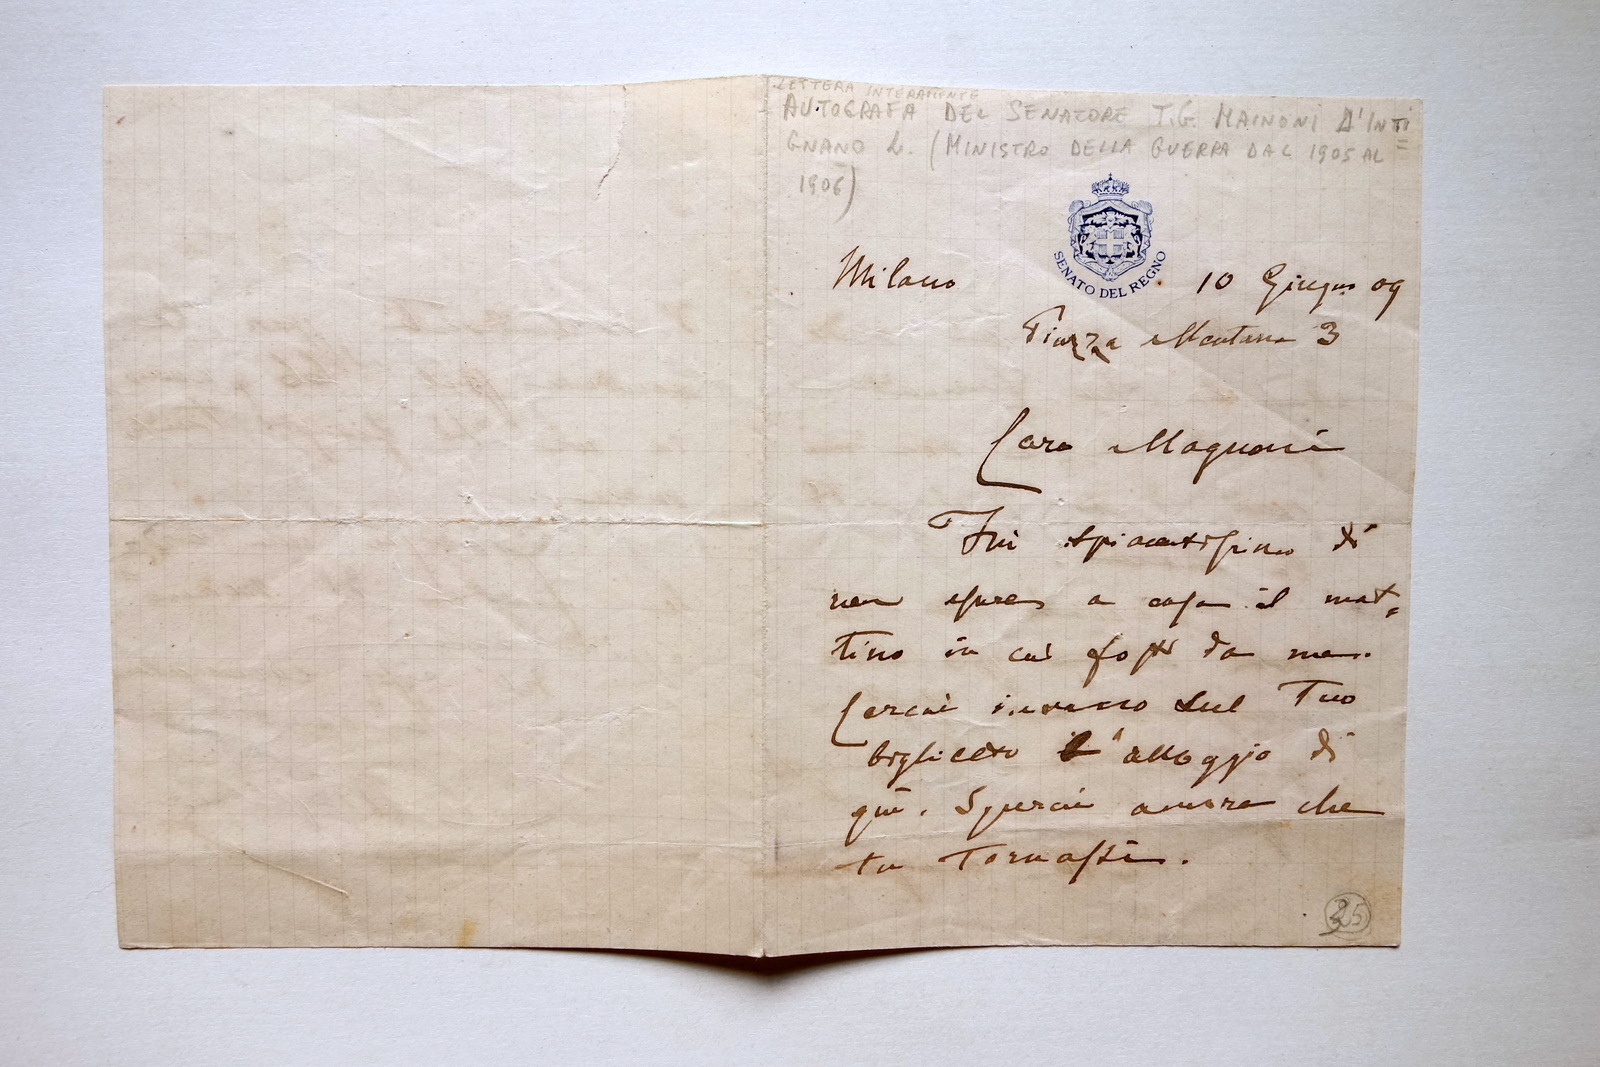 LETTERA INTERAMENTE
AUTOGRAFA DEL SENATORE T.G. MAINONI D'INTI=
GNANO L. (MINISTRO DELLA GUERRA DAL 1905 AL
1906)
SENATO DEL REGNO
Milano 10 Giugno 09
Piazza Mentana 3
Caro Magnani
Fui spiacentissimo di
non essere a casa il mat=
tino in cui fosti da me.
Cercai invano sul Tuo
biglietto l'alloggio di
qui. Sperai ancora che
tu tornassi.
25